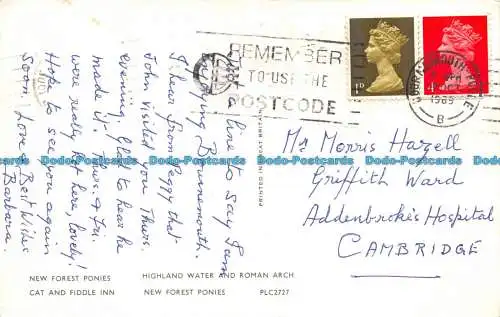 Just a line to say I am
enjoying Bournemouth.
I hear from Peggy that
John visited you Thurs.
evening. Glad to hear he
made it. Thurs. & Fri.
were really hot here, lovely!
Hope to see you again
soon. Love & Best Wishes
Barbara.
REMEMBER
TO USE THE
POSTCODE
BOURNEMOUTH-POOLE
1969
B
Mr Morris Hazell
Griffith Ward
Addenbroke's Hospital
CAMBRIDGE
PRINTED IN GREAT BRITAIN
NEW FOREST PONIES
HIGHLAND WATER AND ROMAN ARCH
CAT AND FIDDLE INN
NEW FOREST PONIES
PLC2727
Dodo-Postcards Dodo-Postcards Dodo-Postcards Dodo-Postcards Dodo-Postcards